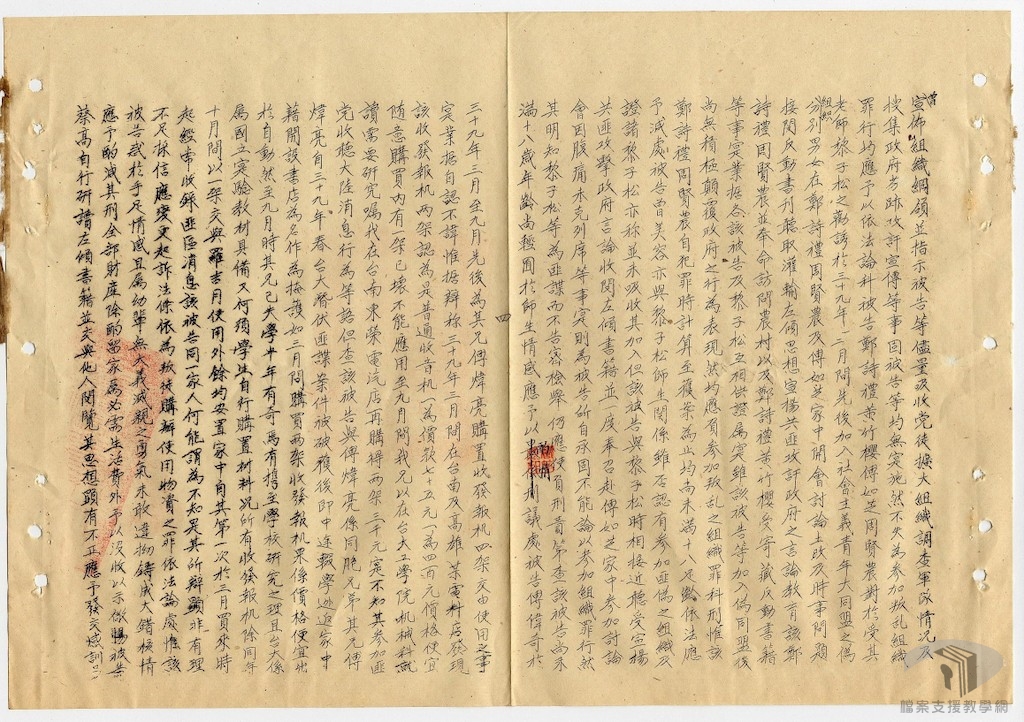 曾
宣佈「組織綱領並指示被告等儘量吸收黨徒擴大組織調查軍隊情況及
搜集政府劣跡攻訐宣傳等事固被告等均無實施然不失為參加叛亂組織
罪行均應予以依法論科被告鄭詩禮黃竹櫻傅如芝周賢農對於受其
老師黎子松之勸誘於三十九年一二月間先後加入社會主義青年大同盟之偽
組織
分別男女在鄭詩禮周賢農及傅如芝家中開會討論土改及時事問題
接閱反動書刊聽取灌輸左傾思想宣揚共匪攻訐政府之言論教育該鄭
詩禮周賢農並奉命訪問農村以及鄭詩禮黃竹櫻受寄藏反動書籍
等事實業據各該被告及黎子松互相供證屬實雖該被告等加入偽同盟後
尚無積極顛覆政府之行為表現然均應有參加叛亂之組織罪科刑惟該
鄭詩禮周賢農自犯罪時計算至獲案為止均尚未滿十八足歲依法應
予減處被告曾吳容亦與黎子松師生關係雖否認有參加匪偽之組織及
證諸黎子松亦稱並未吸收其加入但該被告與黎子松時相接近聽受宣揚
共匪攻擊政府言論收閱左傾書籍並一度奉召赴傅如芝家中參加討論
會因腹痛未克列席等事實則為被告所自承固不能論以參加組織罪行然
其明知黎子松等為匪諜而不告密檢舉仍應使負刑責第查該被告尚未
滿十八歲年齡尚輕囿於師生情感應予以
議處被告傅偉奇於
四
三十九年三月至九月先後為其兄傅煒亮購置收發報机四架交由使用之事
實業據自認不諱惟據辯稱三十九年三月間在台南及高雄某電料店發現
該收發報机兩架認為是普通收音机一為價款七十五元一為四百元價格便宜
隨意購買內有一架已壞不能應用至九月間我兄以在台大工學院机械科就
讀需要研究囑我在台南東榮電汽店再購得兩架二千元實不知其參加匪
黨收聽大陸消息行為等語但查該被告與傅煒亮係同胞兄弟其兄傅
煒亮自三十九年春台大潛伏匪諜案件被破獲後即中途輟學逃返家中
藉開設書店為名作為掩護如三月間購買兩架收發報机果係價格便宜出
於自動然至九月時其兄已失學半年有奇焉有攜至學校研究之理且台大係
屬國立實驗教材具備又何須學生自行購置材料況所有收發報机除同年
十月間以一架交與羅吉月使用外餘均安置家中自其第一次於三月買來時
起經常收錄匪區消息該被告同一家人何能諉為不知是其所辯顯非有理
不足採信應變更起訴法條依為叛徒購辦使用物資之罪依法論處惟該
被告惑於手足情感且屬幼輩無大義滅親之勇氣未敢違拗鑄成大錯核情
應予酌減其刑全部財產除酌留家屬必需生活費外予以沒收以示儆惕被告
蔡高自行研讀左傾書籍並交與他人閱覽其思想顯有不正應予發交感訓
檔案支援教學網